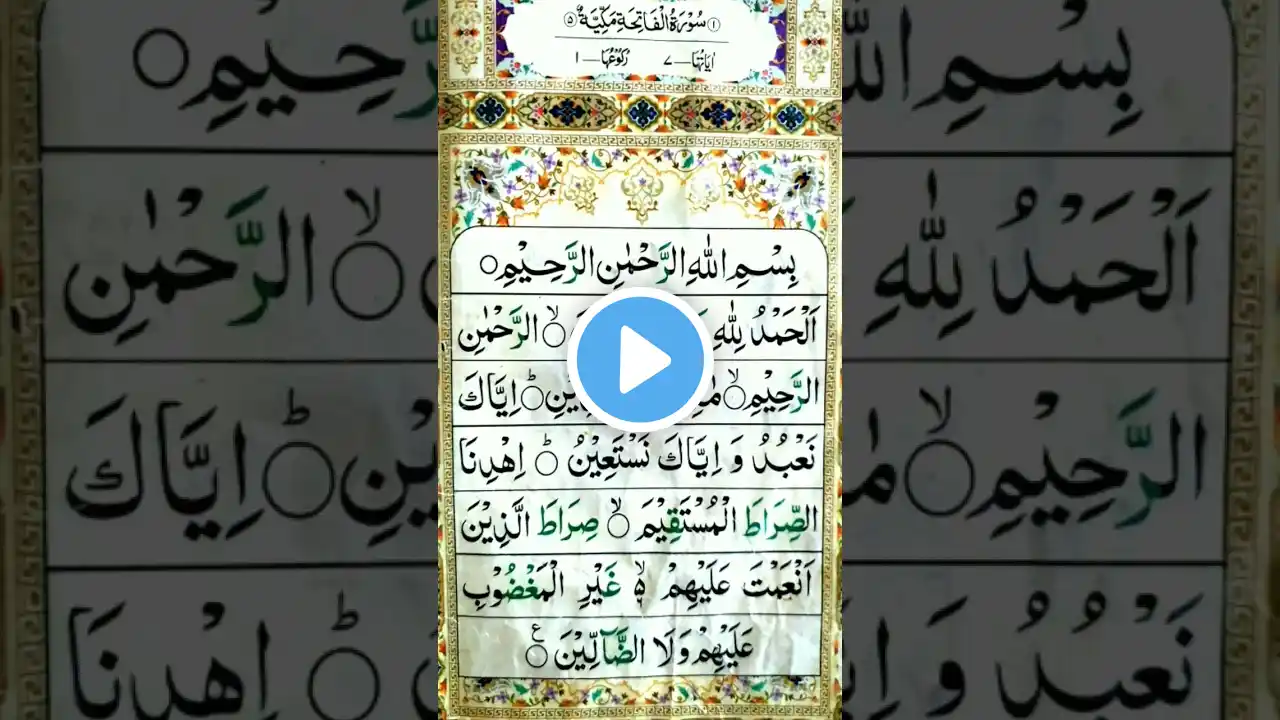 ۱ سُوْرَةُ الْفَاتِحَةِ مَكِّيَّةٌ ۵
اٰيَاتُهَا — ۷ رُكُوْعُهَا — ۱
بِسْمِ اللّٰهِ الرَّحْمٰنِ الرَّحِيْمِ ○
اَلْحَمْدُ لِلّٰهِ ○ۙ الرَّحْمٰنِ
الرَّحِيْمِ ○ۙ ○ؕ اِيَّاكَ
نَعْبُدُ وَ اِيَّاكَ نَسْتَعِيْنُ ○ؕ اِهْدِنَا
الصِّرَاطَ الْمُسْتَقِيْمَ ○ۙ صِرَاطَ الَّذِيْنَ
اَنْعَمْتَ عَلَيْهِمْ ۙ۬ غَيْرِ الْمَغْضُوْبِ
عَلَيْهِمْ وَلَا الضَّآلِّيْنَ ○ع